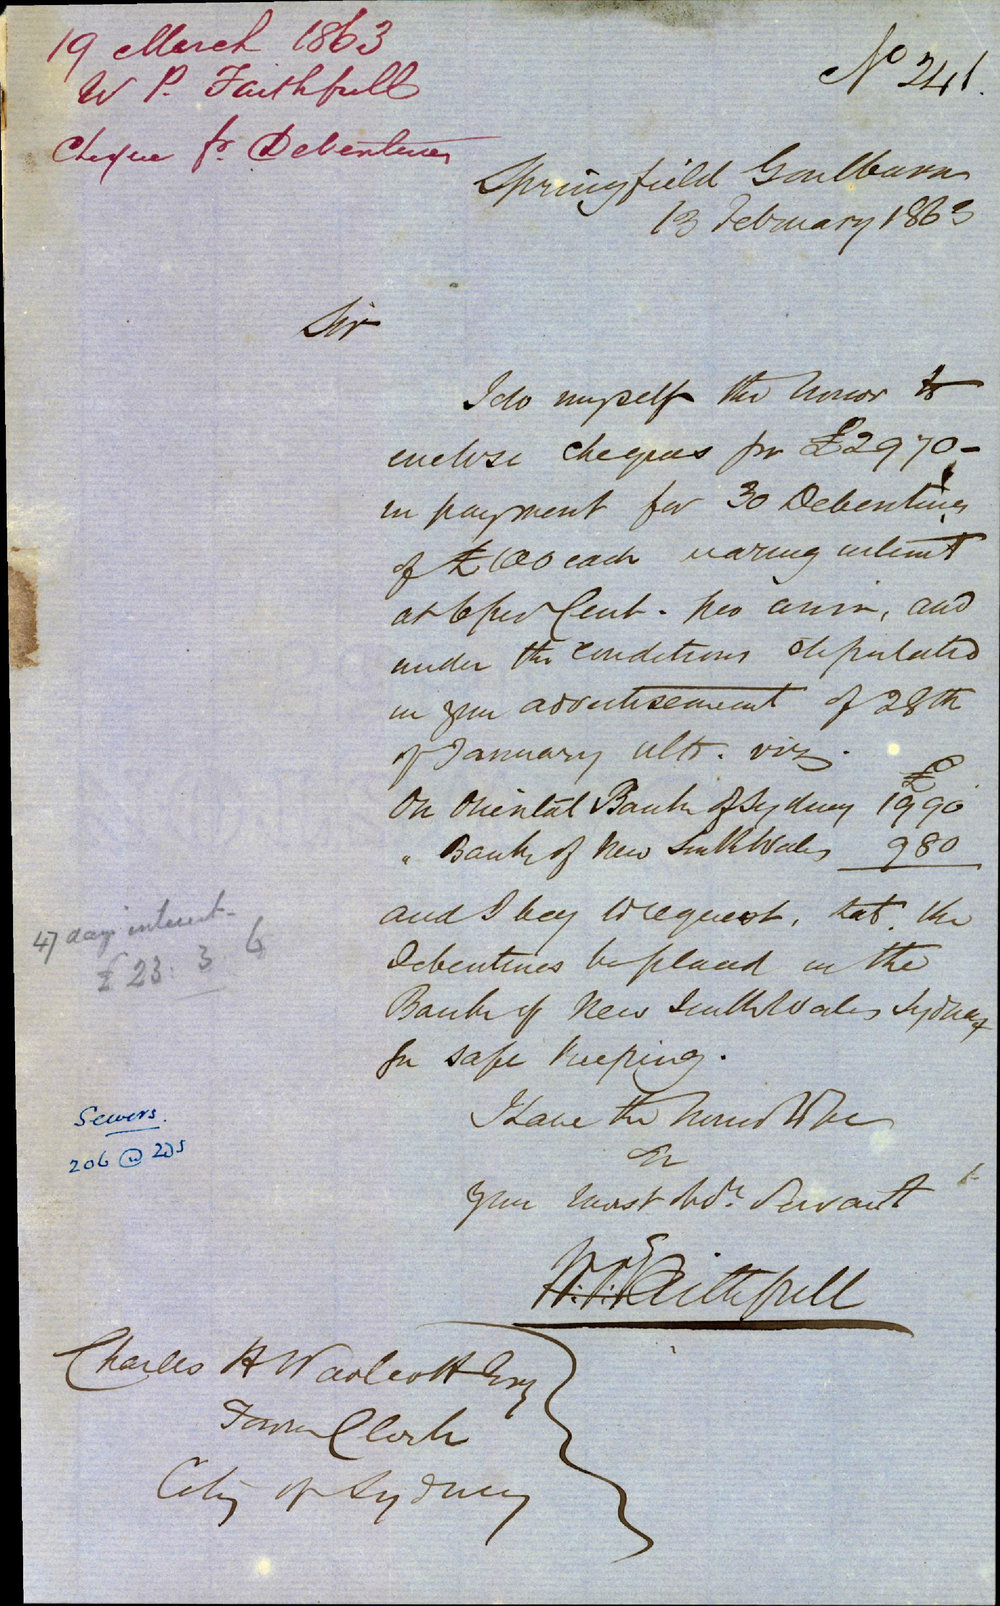 19 March 1863
W P. Faithfull
Cheque for Debentures
No 241.
Springfield Goulburn
13 February 1863
Sir
I do myself the honor to
enclose cheques for £2970-
in payment for 30 Debentures
of £100 each bearing interest
at 6 per Cent. per ann, and
under the conditions stipulated
in your advertisement of 28th
of January ulto. viz.
£
On Oriental Bank of Sydney 1990
" Bank of New South Wales 980
and I beg to request, that the
Debentures be placed in the
Bank of New South Wales Sydney
for safe keeping.
47 days interest
£23. 3. 6
Sewers.
206 @ 205
I have the honor to be
Sir
your most obdt. Servant
W. P. Faithfull
Charles H Woolcott Esq
Town Clerk
City of Sydney